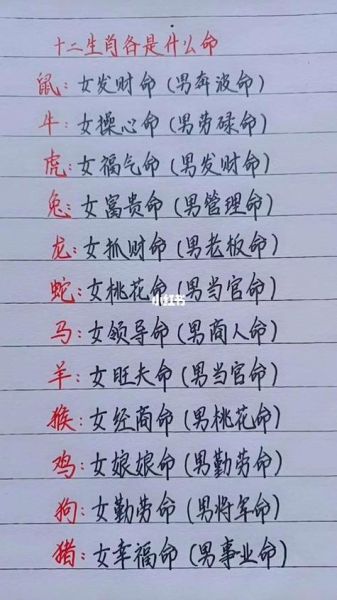 十二生肖各是什么命
鼠：女发财命（男奔波命）
牛：女操心命（男劳碌命）
虎：女福气命（男发财命）
兔：女富贵命（男管理命）
龙：女抓财命（男老板命）
蛇：女桃花命（男当官命）
小红书
马：女领导命（男商人命）
羊：女旺夫命（男当官命）
猴：女经商命（男桃花命）
鸡：女娘娘命（男勤劳命）
狗：女勤劳命（男将军命）
猪：女幸福命（男事业命）